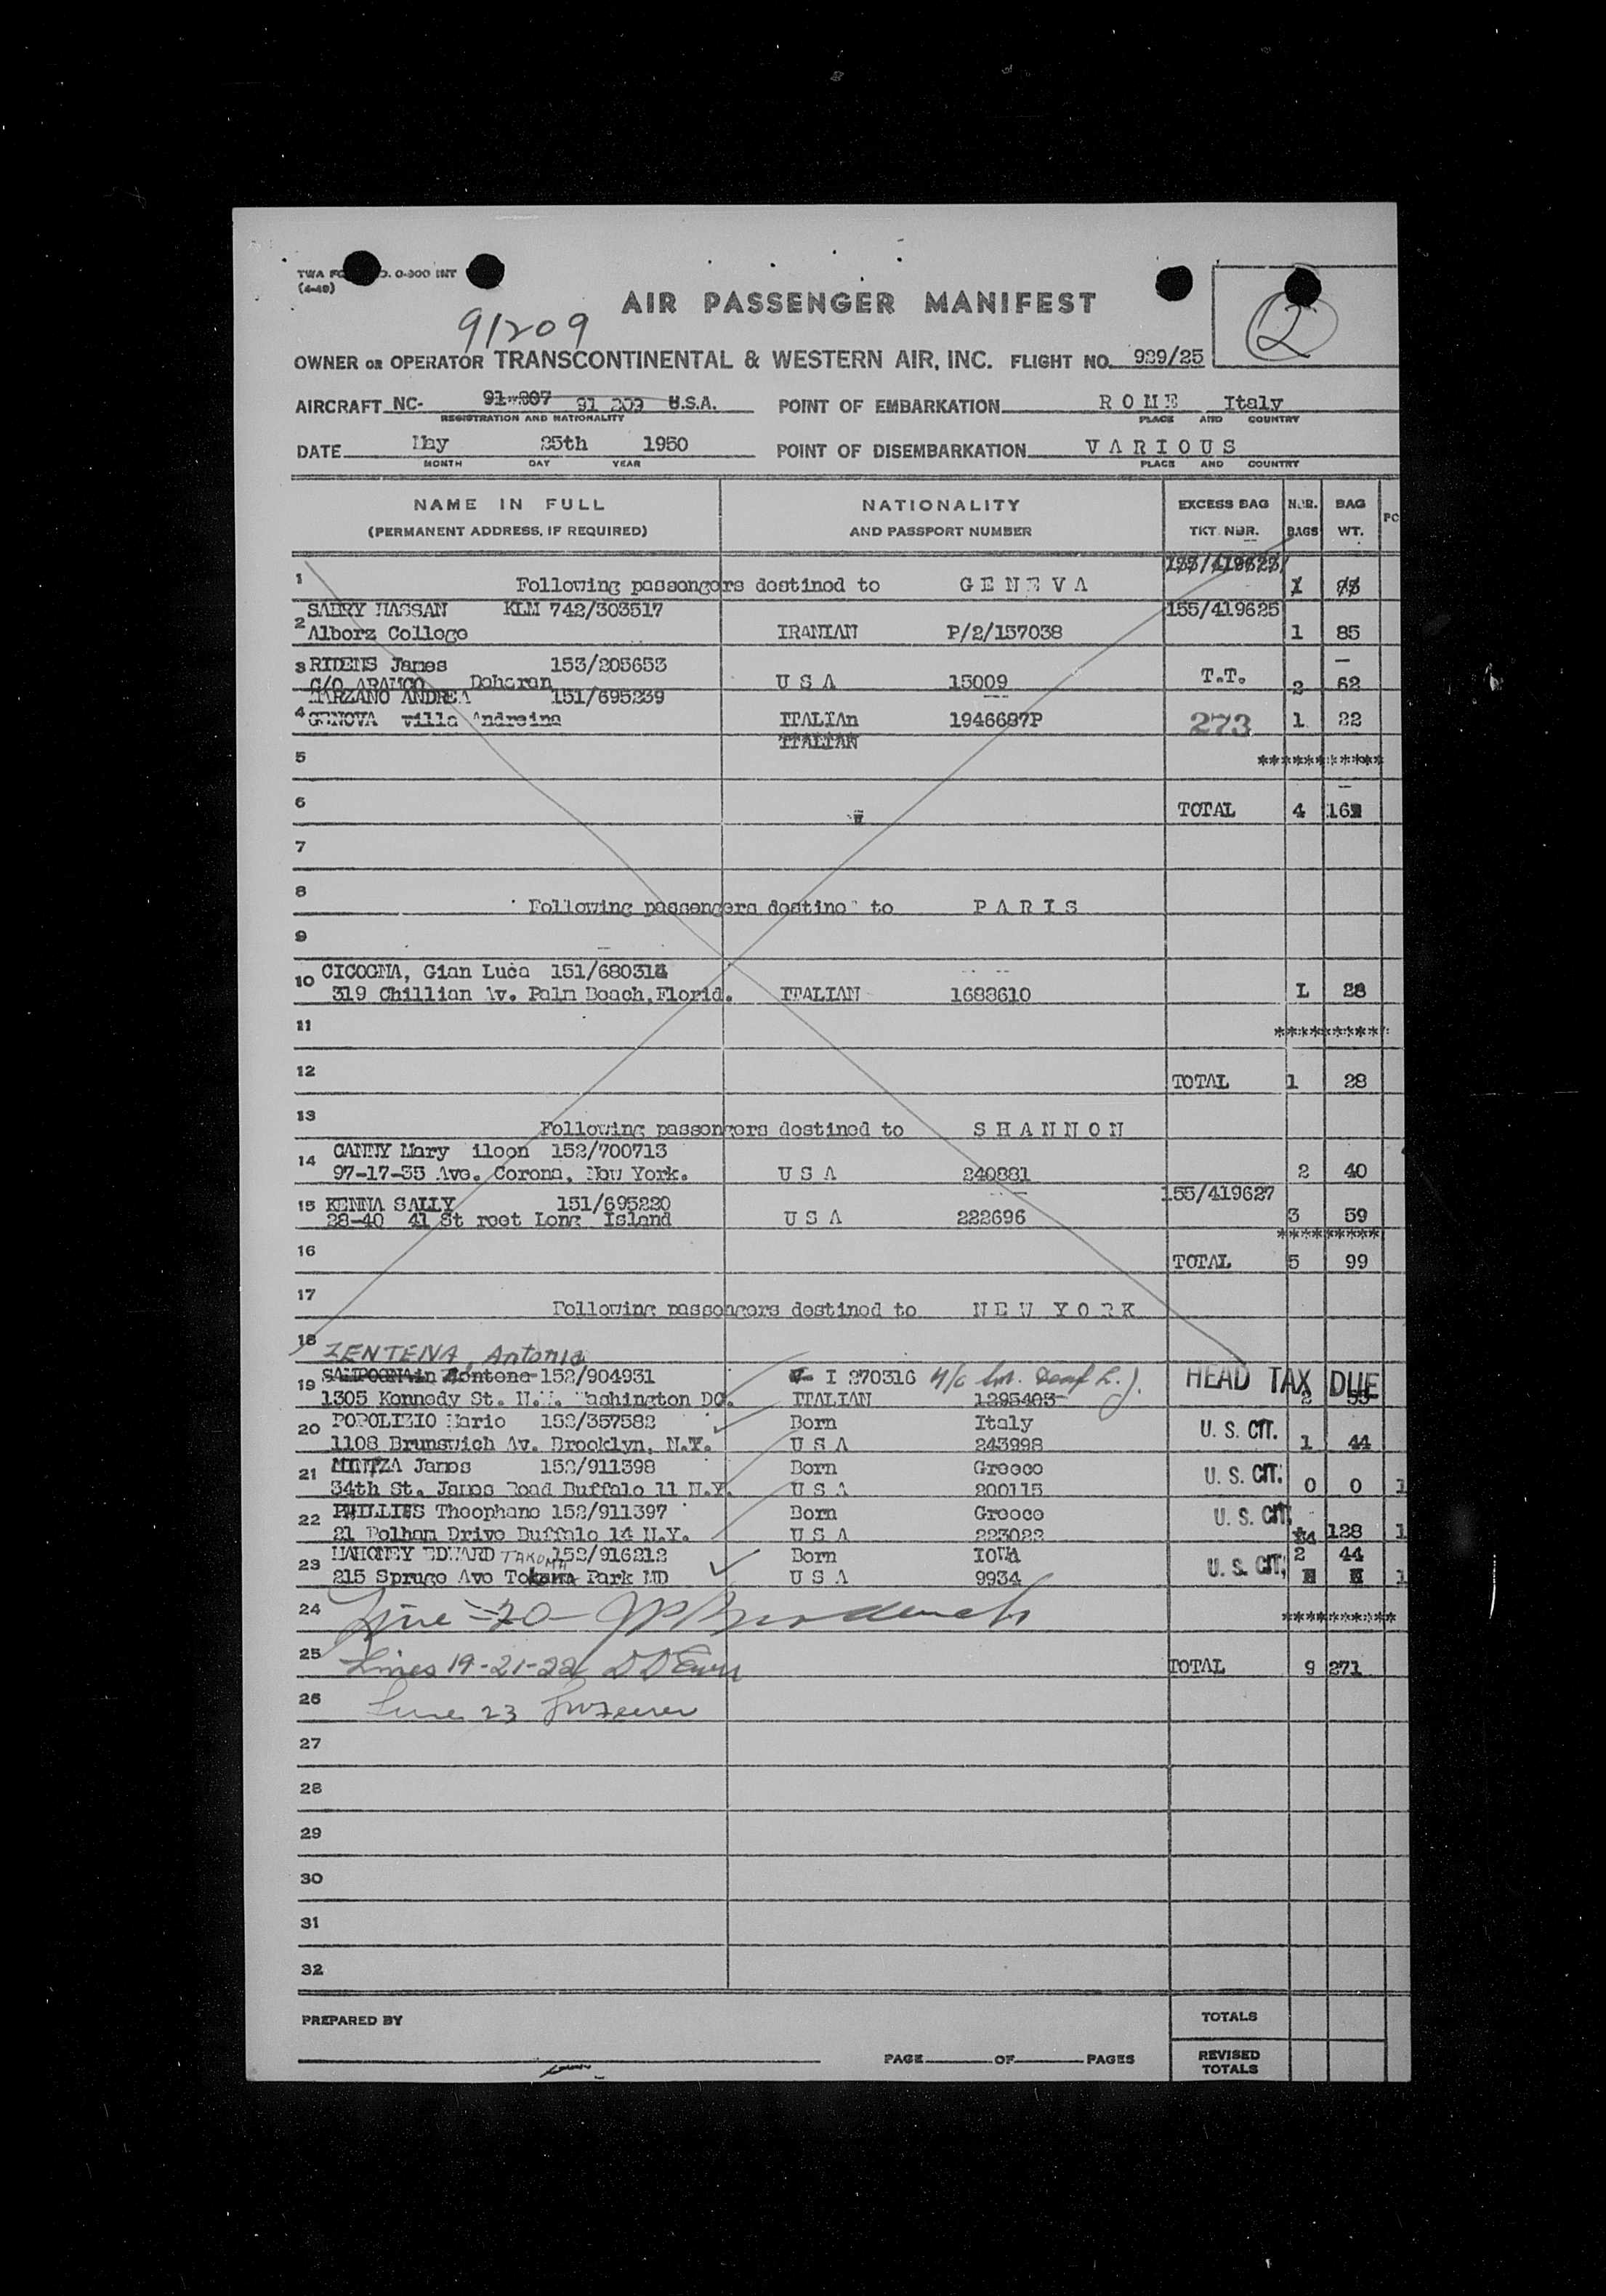 TWA FO . O-300 INT
(4-49)
AIR PASSENGER MANIFEST
2
91209
OWNER OR OPERATOR TRANSCONTINENTAL & WESTERN AIR, INC. FLIGHT NO. 929/25
AIRCRAFT NC- 91 207 91 209 U.S.A. POINT OF EMBARKATION R O M E Italy
REGISTRATION AND NATIONALITY PLACE AND COUNTRY
DATE May 25th 1950 POINT OF DISEMBARKATION V A R I O U S
MONTH DAY YEAR PLACE AND COUNTRY
NAME IN FULL NATIONALITY EXCESS BAG NBR. BAG
(PERMANENT ADDRESS, IF REQUIRED) AND PASSPORT NUMBER TKT. NBR. BAGS WT. PC
155/419623/
1 Following passengers destined to G E N E V A 1
SABRY HASSAN KLM 742/303517 155/419625
2 Alborz College IRANIAN P/2/157038 1 85
3 RIDENS James 153/205653 T.T.
C/O ARAMCO Daharan U S A 15009 2 62
MARZANO ANDREA 151/695239
4 GENOVA villa Andreina ITALIAn 1946687P 273 1 22
ITALIAN
5 ***********
6 TOTAL 4 16
7
8 Following passengers destine to P A R I S
9
10 CICOGNA, Gian Luca 151/680314
319 Chillian Av. Palm Beach, Florid. ITALIAN 1688610 1 28
11 **********
12 TOTAL 1 28
13 Following passengers destined to S H A N N O N
14 CANNY Mary ileen 152/700713
97-17-35 Ave. Corona, New York. U S A 240881 2 40
15 KENNA SALLY 151/695220 155/419627
28-40 41 St reet Long Island U S A 222696 3 59
*********
16 TOTAL 5 99
17 Following passengers destined to N E W Y O R K
18 ZENTENA, Antonia
19 152/904931 I 270316 HEAD TAX DUE
1305 Kennedy St. N.W. Washington DC. ITALIAN 1295403 2 55
20 POPOLIZIO Mario 152/357582 Born Italy U. S. CIT.
1108 Brunswich Av. Brooklyn, N.Y. U S A 243998 1 44
21 MINTZA James 152/911398 Born Greece U. S. CIT.
34th St. James Road Buffalo 11 N.Y. U S A 200115 0 0 1
22 PHILLIES Theophane 152/911397 Born Greece U. S. CIT.
21 Pelham Drive Buffalo 14 N.Y. U S A 223022 4 128 1
23 MAHONEY EDWARD TAKOMA 152/916212 Born IOWA U. S. CIT. 2 44
215 Spruge Ave Park MD U S A 9934 1
24 Line - 20 - **********
25 Lines 19-21-22 TOTAL 9 271
26 Line 23
27
28
29
30
31
32
PREPARED BY TOTALS
PAGE OF PAGES REVISED
TOTALS